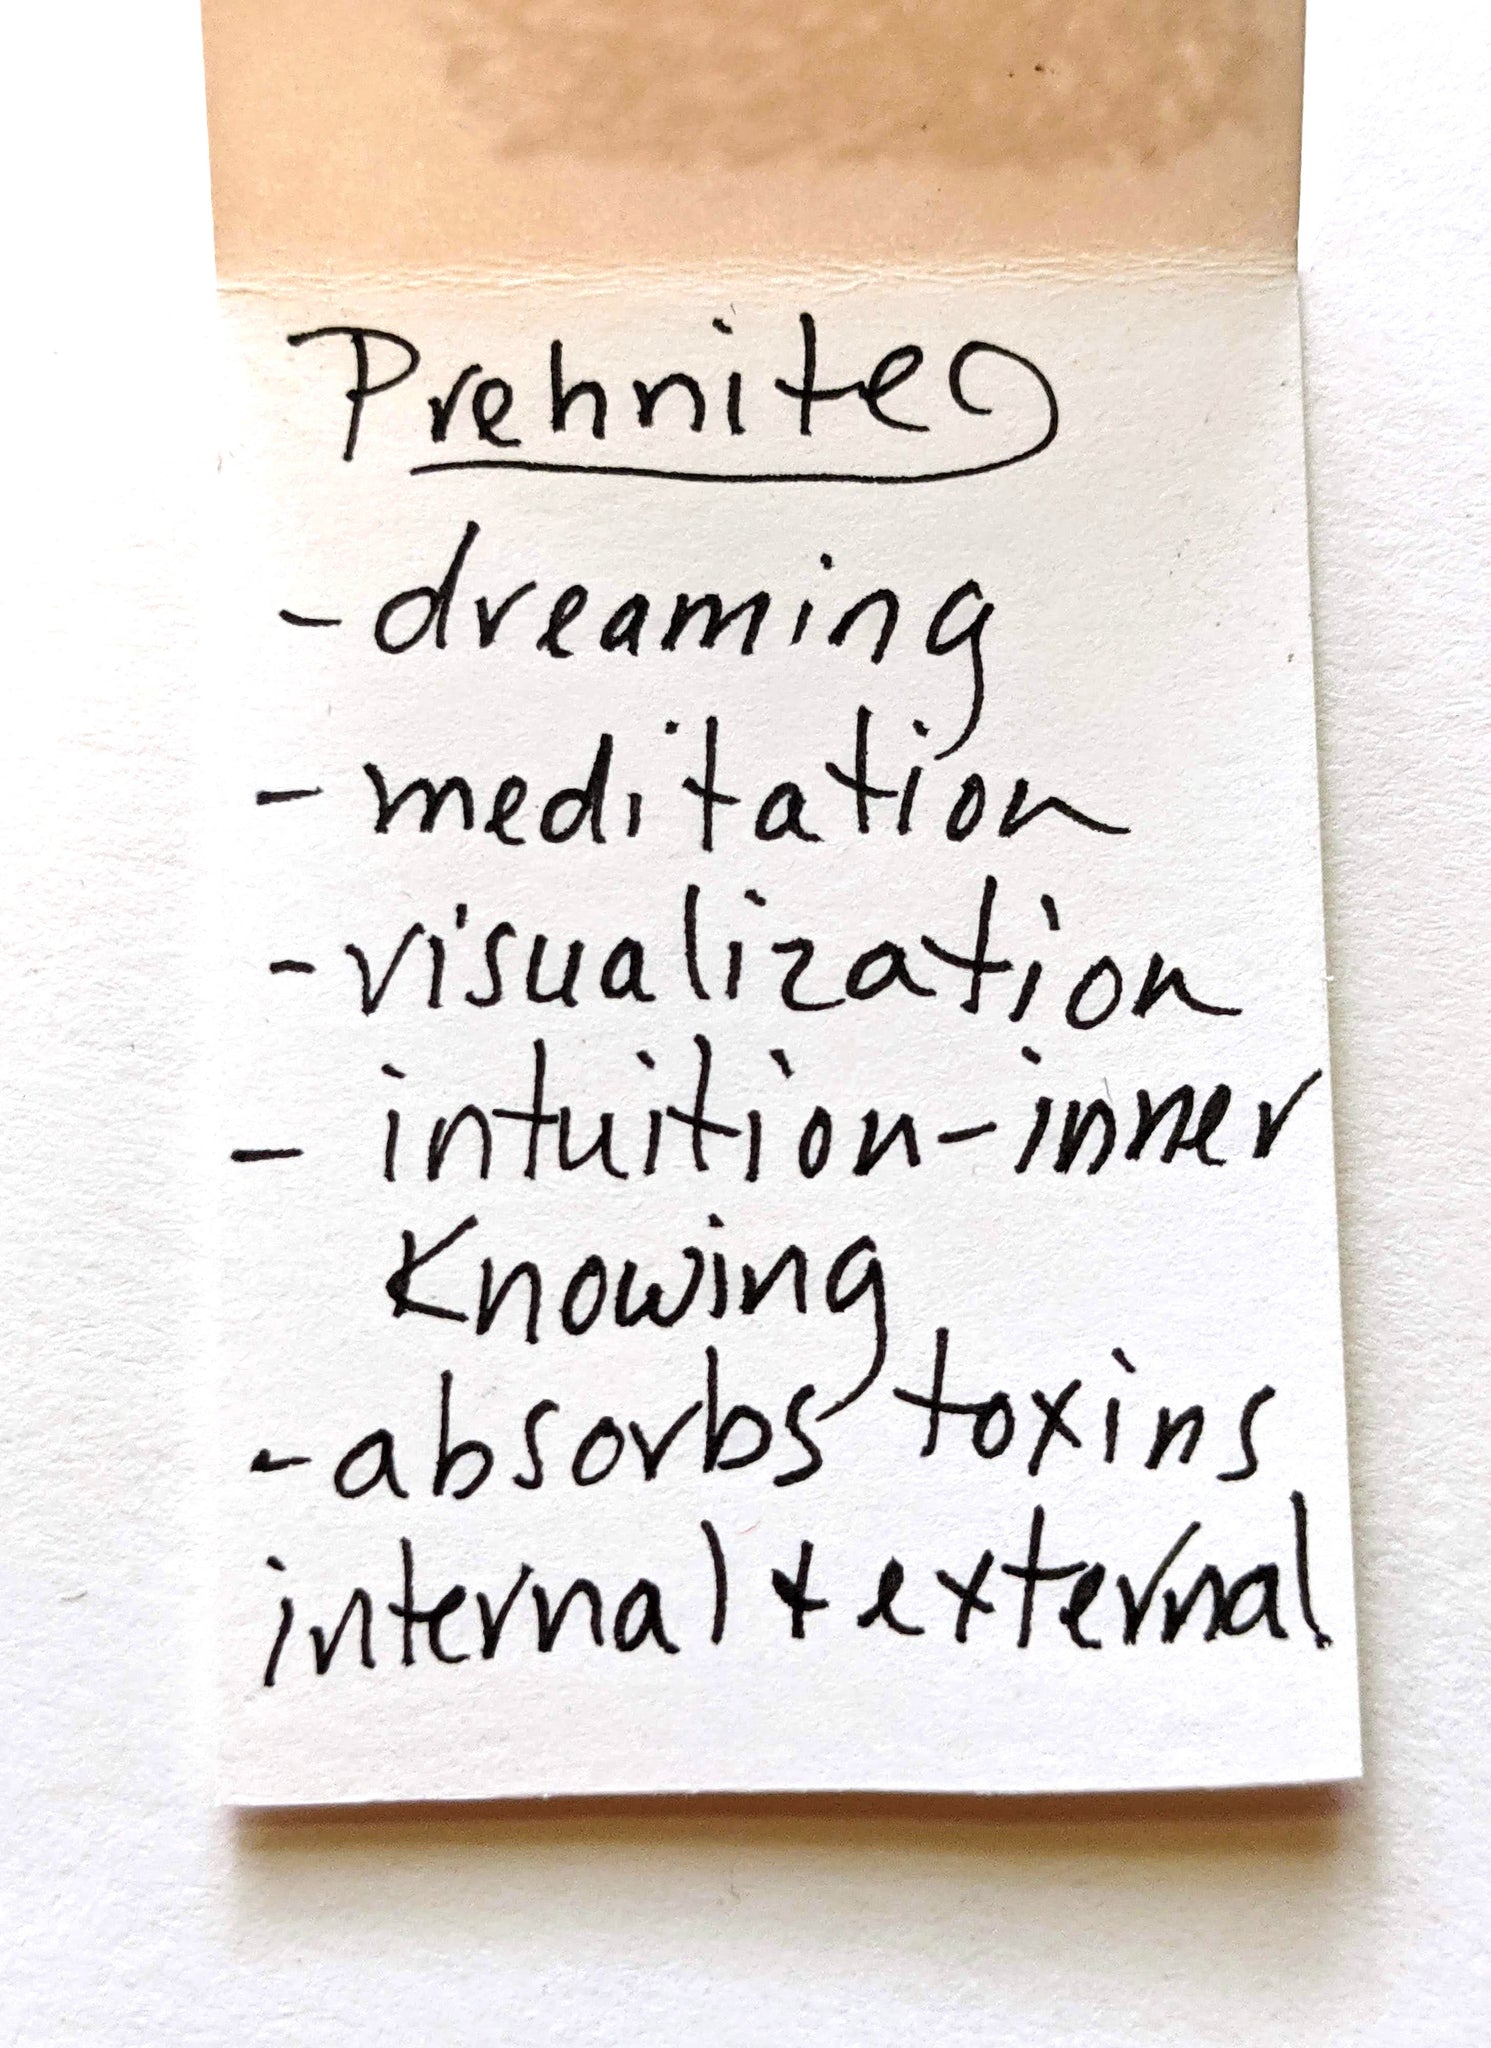 Prehnite
- dreaming
- meditation
- visualization
- intuition - inner
Knowing
- absorbs toxins
internal & external